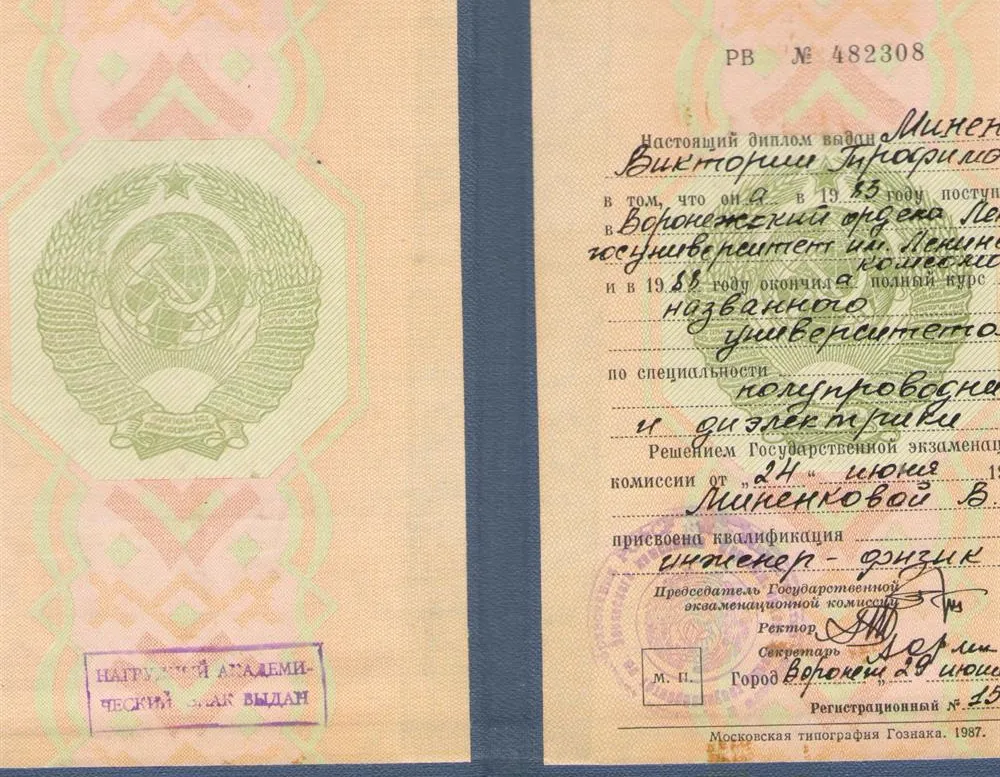 НАГРУДНЫЙ АКАДЕМИ-
ЧЕСКИЙ ЗНАК ВЫДАН
РВ № 482308
Настоящий диплом выдан Минен
Виктории Трофимо
в том, что она в 1983 году поступ
в Воронежский ордена Ле
госуниверситет им. Ленинс
комсомо
и в 1988 году окончила полный курс
названного
университета
по специальности
полупроводни
и диэлектрики
Решением Государственной экзаменац
комиссии от „24“ июня 19
Миненковой В
присвоена квалификация
инженер-физик
Председатель Государственной
экзаменационной комиссии
Ректор
Секретарь
М. П.
Город Воронеж, 29 июн
Регистрационный № 15
Московская типография Гознака. 1987.